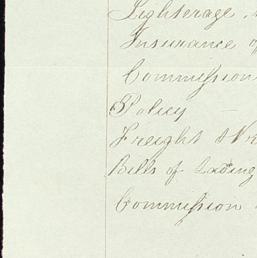 Lighterage
Insurance of
Commission
Policy —
Freight &
Bills of Lading
Commission